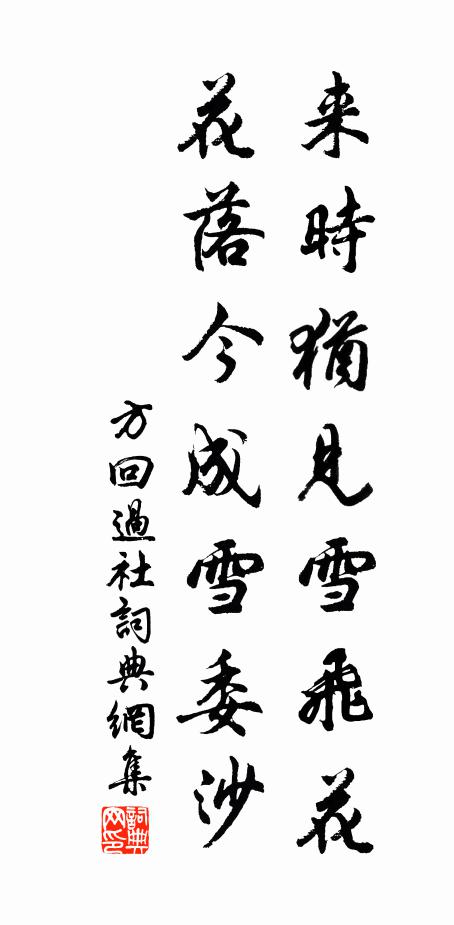 来時猶見雪飛花
花落今成雪委沙
方回過社詞典網集
詞典網印